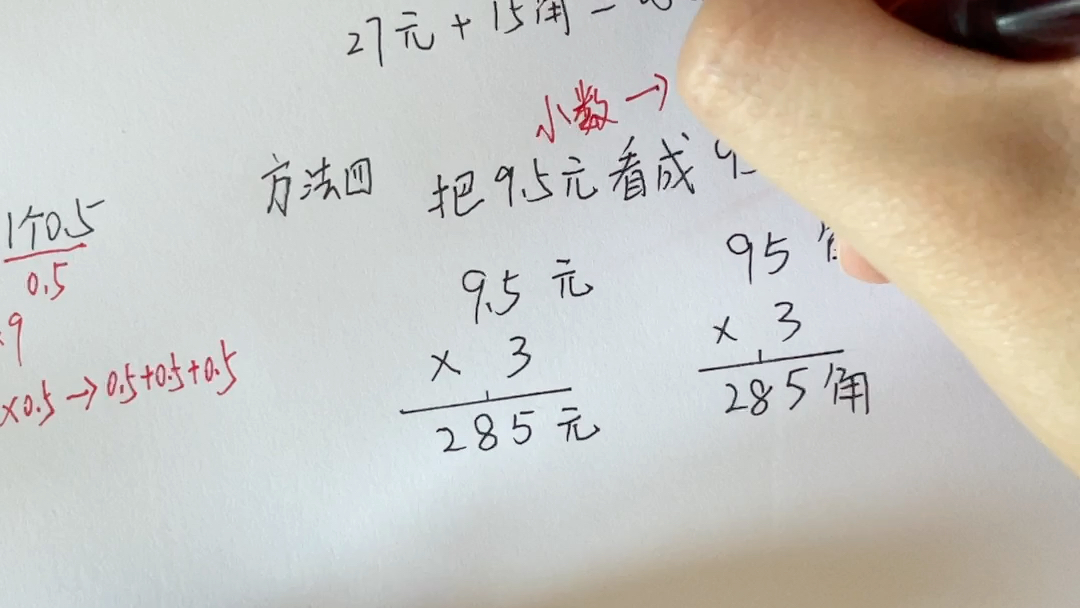 27元+15角=
小数→
方法四 把9.5元看成9
1个0.5
0.5
9
×0.5→0.5+0.5+0.5
9.5 元
× 3
285 元
95
× 3
285 角